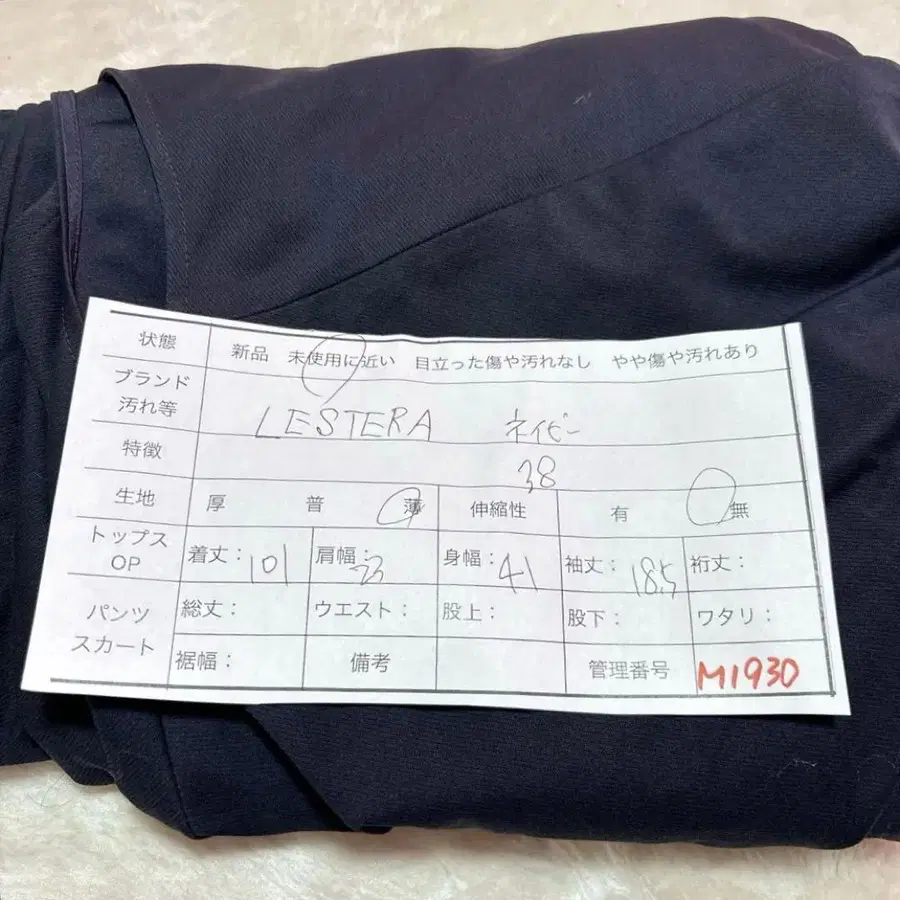 状態 新品 未使用に近い 目立った傷や汚れなし やや傷や汚れあり
ブランド
汚れ等 LESTERA ネイビー
特徴 38
生地 厚 普 薄 伸縮性 有 無
トップス
OP 着丈：101 肩幅： 身幅：41 袖丈：18.5 裄丈：
パンツ
スカート 総丈： ウエスト： 股上： 股下： ワタリ：
裾幅： 備考 管理番号 M1930